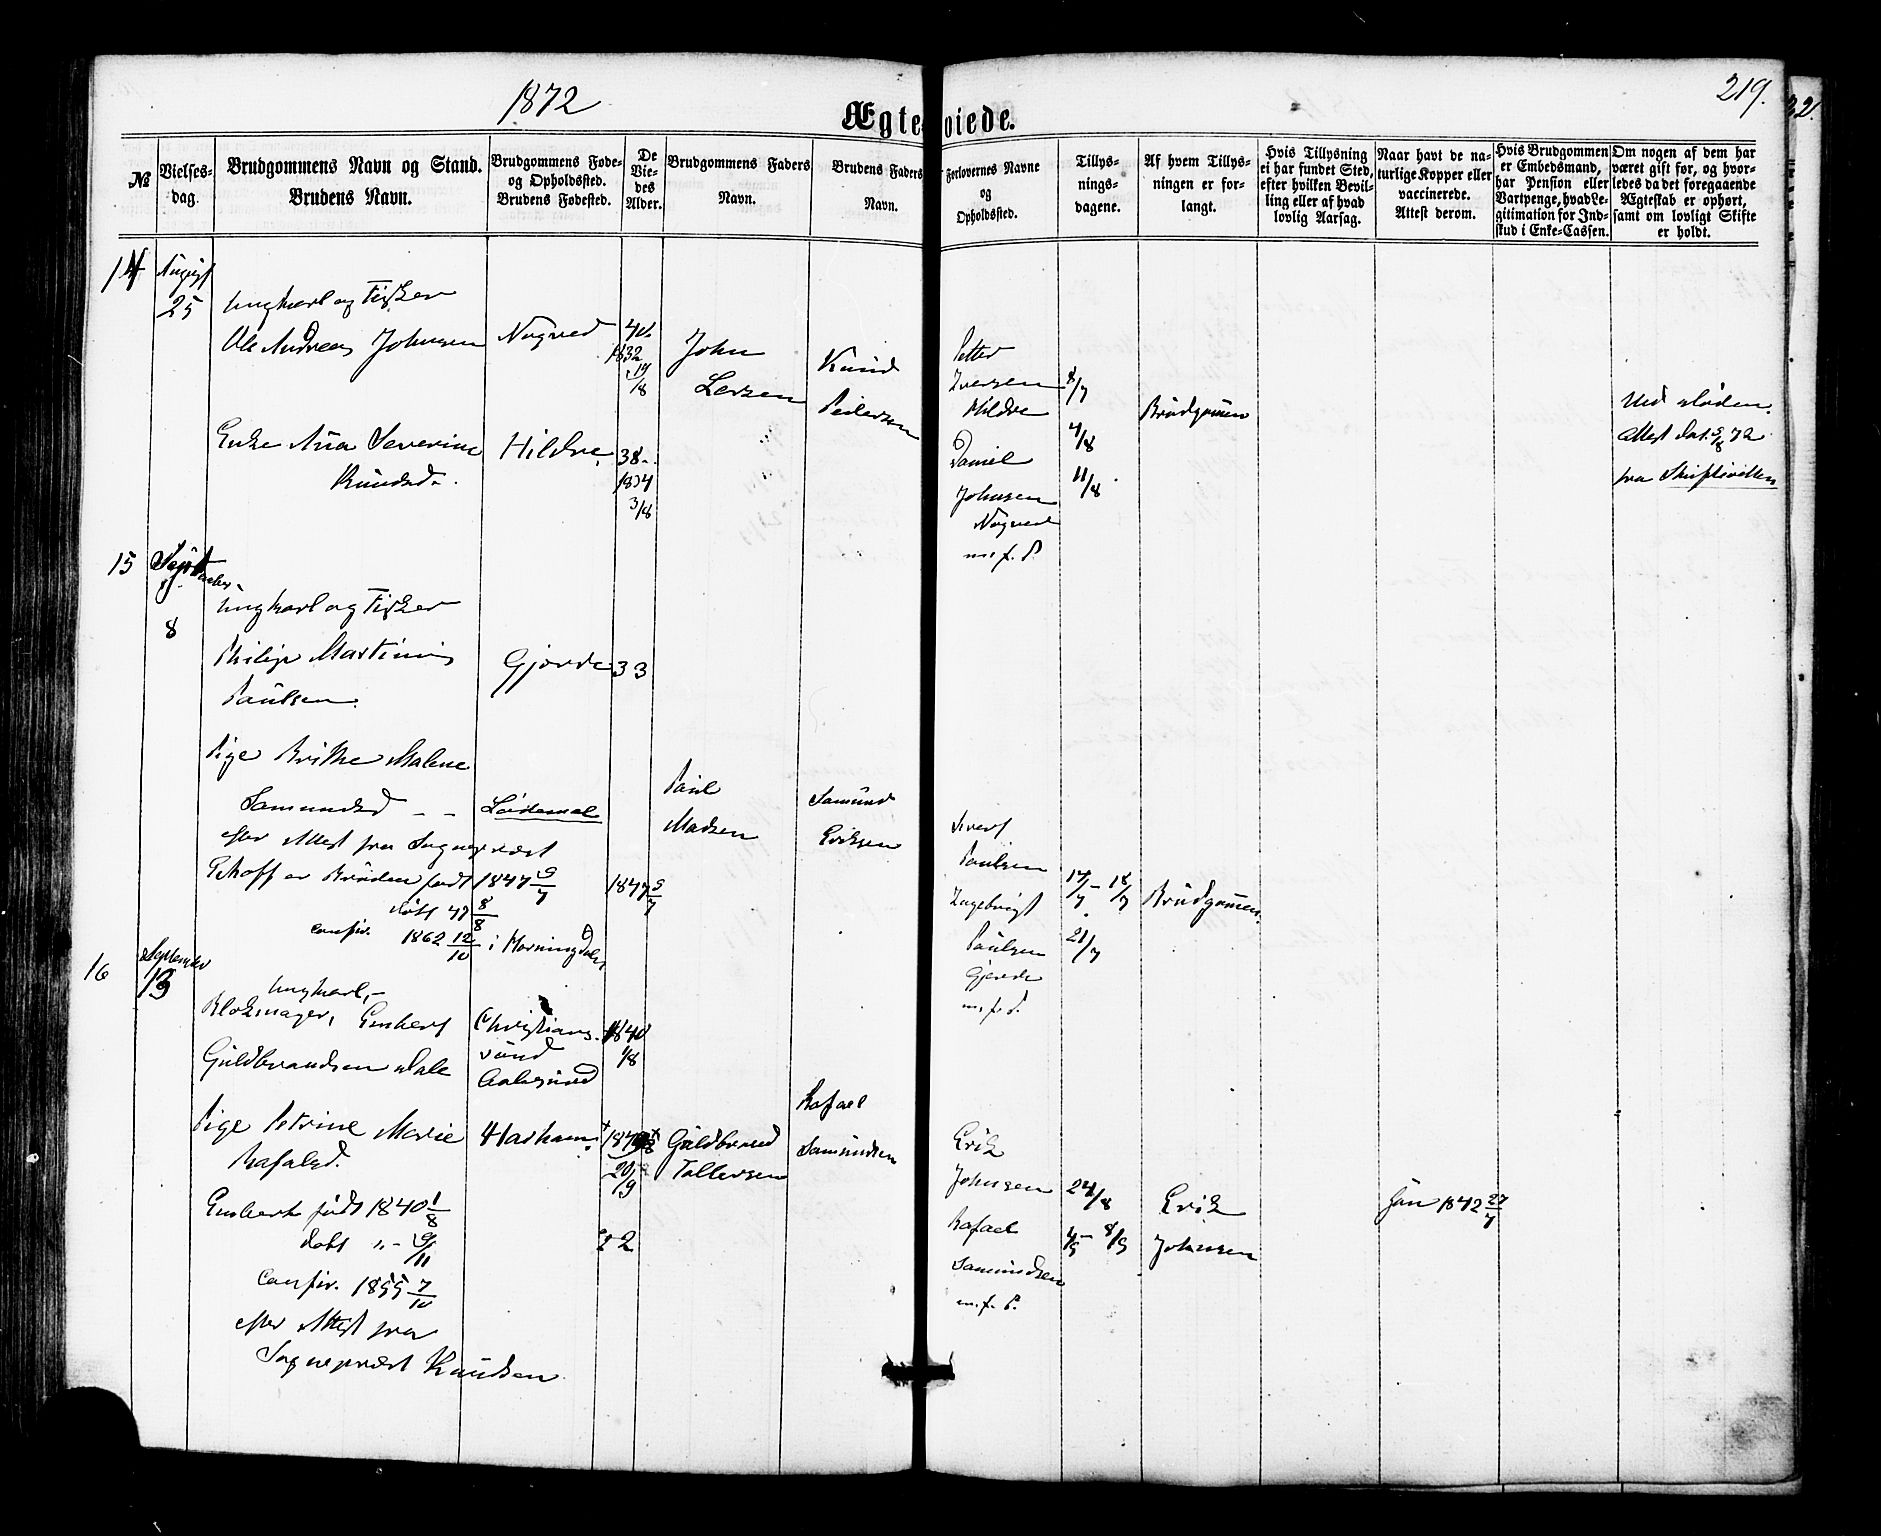 1872
219.
Ægteviede.
№
Vielses-
dag.
Brudgommens Navn og Stand.
Brudens Navn.
Brudgommens Føde-
og Opholdssted.
Brudens Fødested.
De
Vie-
des
Alder.
Brudgommens Faders
Navn.
Brudens Faders
Navn.
Forlovernes Navne
og
Opholdssted.
Tillys-
nings-
dagene.
Af hvem Tillys-
ningen er for-
langt.
Hvis Tillysning
ei har fundet Sted,
efter hvilken Bevil-
ling eller af hvad
lovlig Aarsag.
Naar havt de na-
turlige Kopper eller
vaccinerede.
Attest derom.
Hvis Brudgommen
er Embedsmand,
har Pension eller
Vartpenge, hvad Le-
gitimation for Ind-
skud i Enke-Cassen.
Om nogen af dem har
været gift før, og hvor-
ledes da det foregaaende
Ægteskab er ophørt,
samt om lovligt Skifte
er holdt.
14
August
25
Ungkarl og Fisker
Ole Andreas Johnsen
Nogved
40
1832
19/8
John
Larsen
Knud
Pedersen
Enke Ana Severine
Knudsd.
Hildre
38
1834
3/8
Petter
Iversen
Hildre
Daniel
Johnsen
Nogved
m. f. P.
4/8
11/8
Brudgomen
Ved døden.
Attest dat. 5/8 72
fra Skifteretten
15
Septbr
8
Ungkarl og Fisker
Philip Martinus
Paulsen
Gjørde
33
Pige Brithe Malene
Samundsd
efter Attest fra Sognepræst
Eckoff er Bruden født 1847 5/7
døbt 47 8/8
confir. 1862 12/10 i Horningdalen
1847 5/7
Paul
Madsen
Samund
Eriksen
Sivert
Paulsen
Ingebrigt
Paulsen
Gjørde
m. f. P.
21/7
Brudgomen
16
September
13
Ungkarl,
Blokmager, Engbert
Guldbrandsen Dale
Christians-
sund
Aalesund
1840
1/8
Pige Petrine Marie
Rafaelsd.
Harham
20/9
22
Guldbrand
Tollevsen
Rafael
Samundsen
Engbert født 1840 1/8
døbt " 9/11
confir. 1855 7/10
efter Attest fra
Sognepræst Knudsen
Erik
Johnsen
Rafael
Samundsen
m. f. P.
24/8
8/9
Erik
Johnsen
1842 27/7